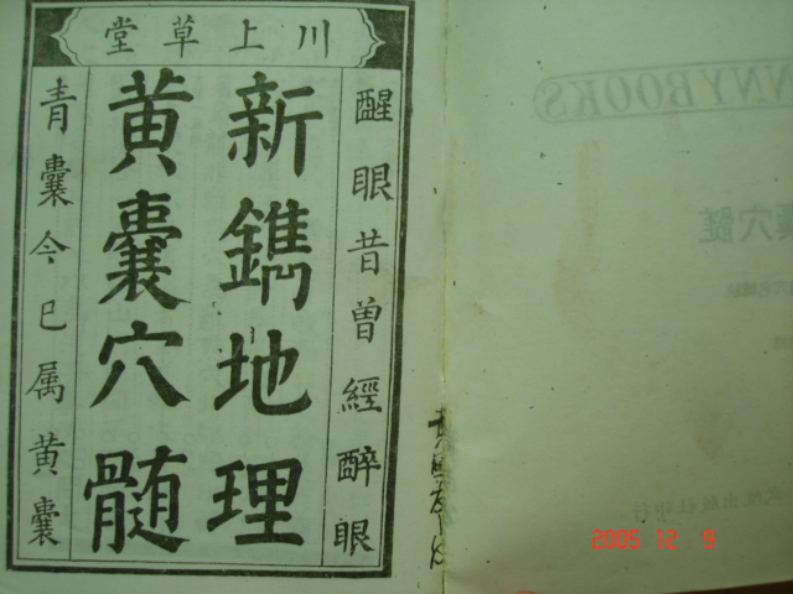 川上草堂
醒眼昔曾經醉眼
新鐫地理
黃囊穴髓
青囊今已属黄囊
NNYBOOKS
囊穴髓
2005 12 9